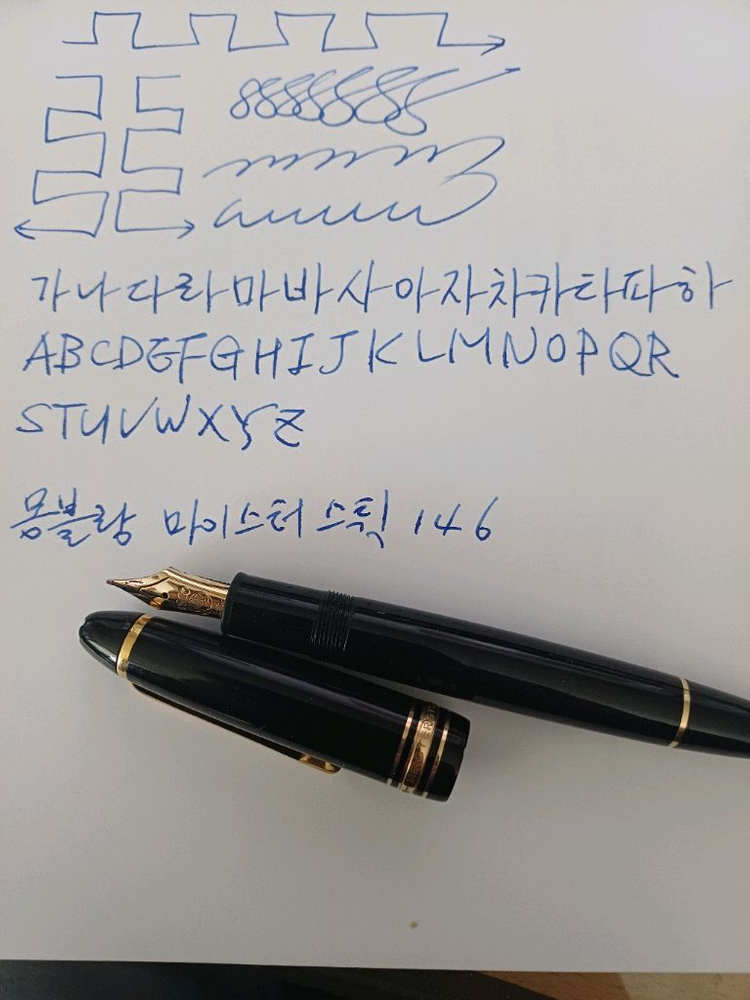 8888888
가나다라마바사아자차카타파하
ABCDEFGHIJKLMNOPQR
STUVWXYZ
몽블랑 마이스터스틱 146